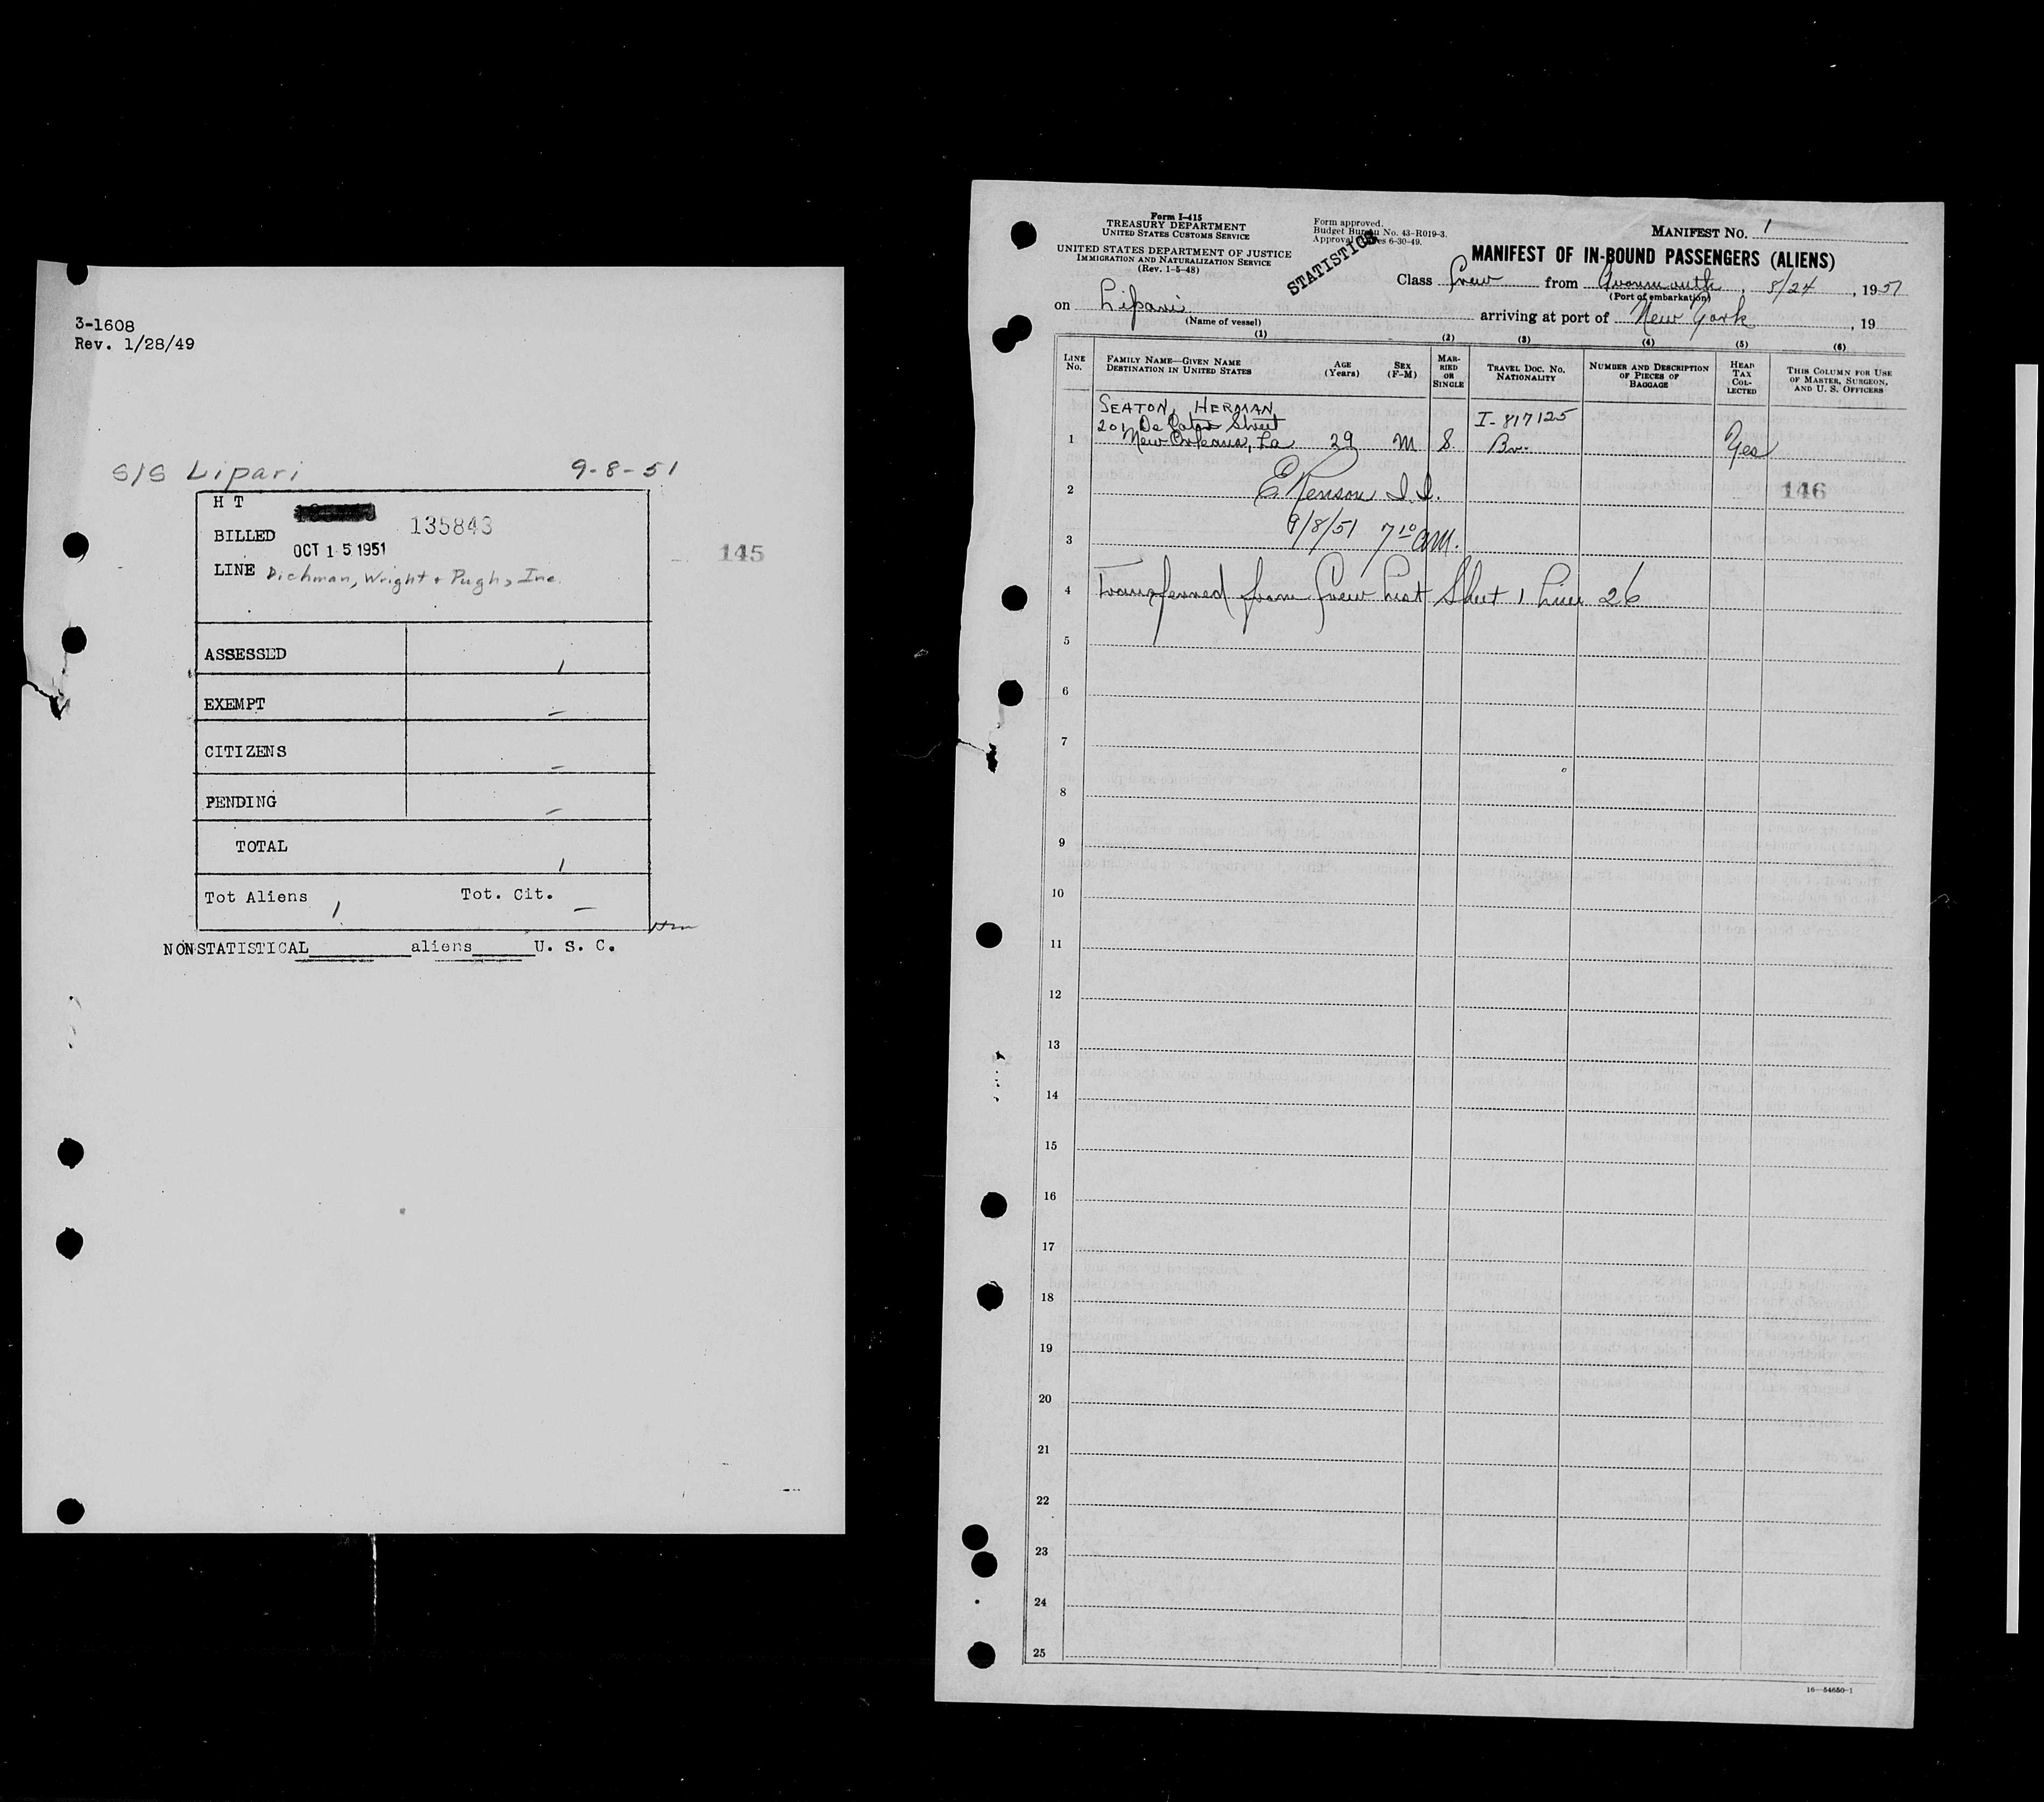 3-1608
Rev. 1/28/49
S/S Lipari 9-8-51
H T
BILLED 135843
OCT 15 1951
145
LINE Dichman, Wright + Pugh, Inc.
ASSESSED 1
EXEMPT –
CITIZENS –
PENDING –
TOTAL 1
Tot Aliens 1 Tot. Cit. –
NONSTATISTICAL aliens U. S. C.
Form I-415
TREASURY DEPARTMENT
UNITED STATES CUSTOMS SERVICE
UNITED STATES DEPARTMENT OF JUSTICE
IMMIGRATION AND NATURALIZATION SERVICE
(Rev. 1-5-48)
Form approved.
Budget Bureau No. 43-R019-3.
Approval expires 6-30-49.
STATISTICS
MANIFEST NO. 1
MANIFEST OF IN-BOUND PASSENGERS (ALIENS)
Class Crew from Avonmouth, 8/24, 1951
(Port of embarkation)
on Lipari arriving at port of New York, 19
(Name of vessel)
(1) (2) (3) (4) (5) (6)
LINE No.
FAMILY NAME—GIVEN NAME
DESTINATION IN UNITED STATES
AGE (Years)
SEX (F-M)
MARRIED OR SINGLE
TRAVEL DOC. NO. NATIONALITY
NUMBER AND DESCRIPTION OF PIECES OF BAGGAGE
HEAD TAX COLLECTED
THIS COLUMN FOR USE OF MASTER, SURGEON, AND U. S. OFFICERS
SEATON, HERMAN I-817125
201 Decatur Street
1 New Orleans, La 29 M S. Br. Yes
2 E Kenson I.I. 146
3 9/8/51 7 10 AM.
4 Transferred from Crew List Sheet 1 Line 26
5
6
7
8
9
10
11
12
13
14
15
16
17
18
19
20
21
22
23
24
25
16—54650-1